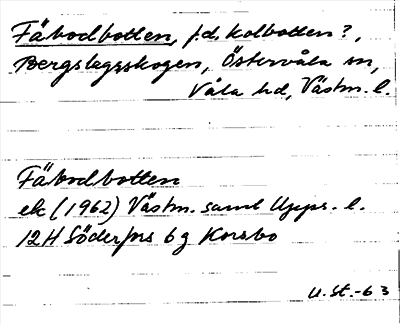 Fäbodbotten, f.d. kolbotten?,
Bergslagsskogen, Östervåla sn,
Våla hd, Västm. l.
Fäbodbotten
ek (1962) Västm. samt Upps. l.
12H Söderfors 6g Korsbo
U.St.-63